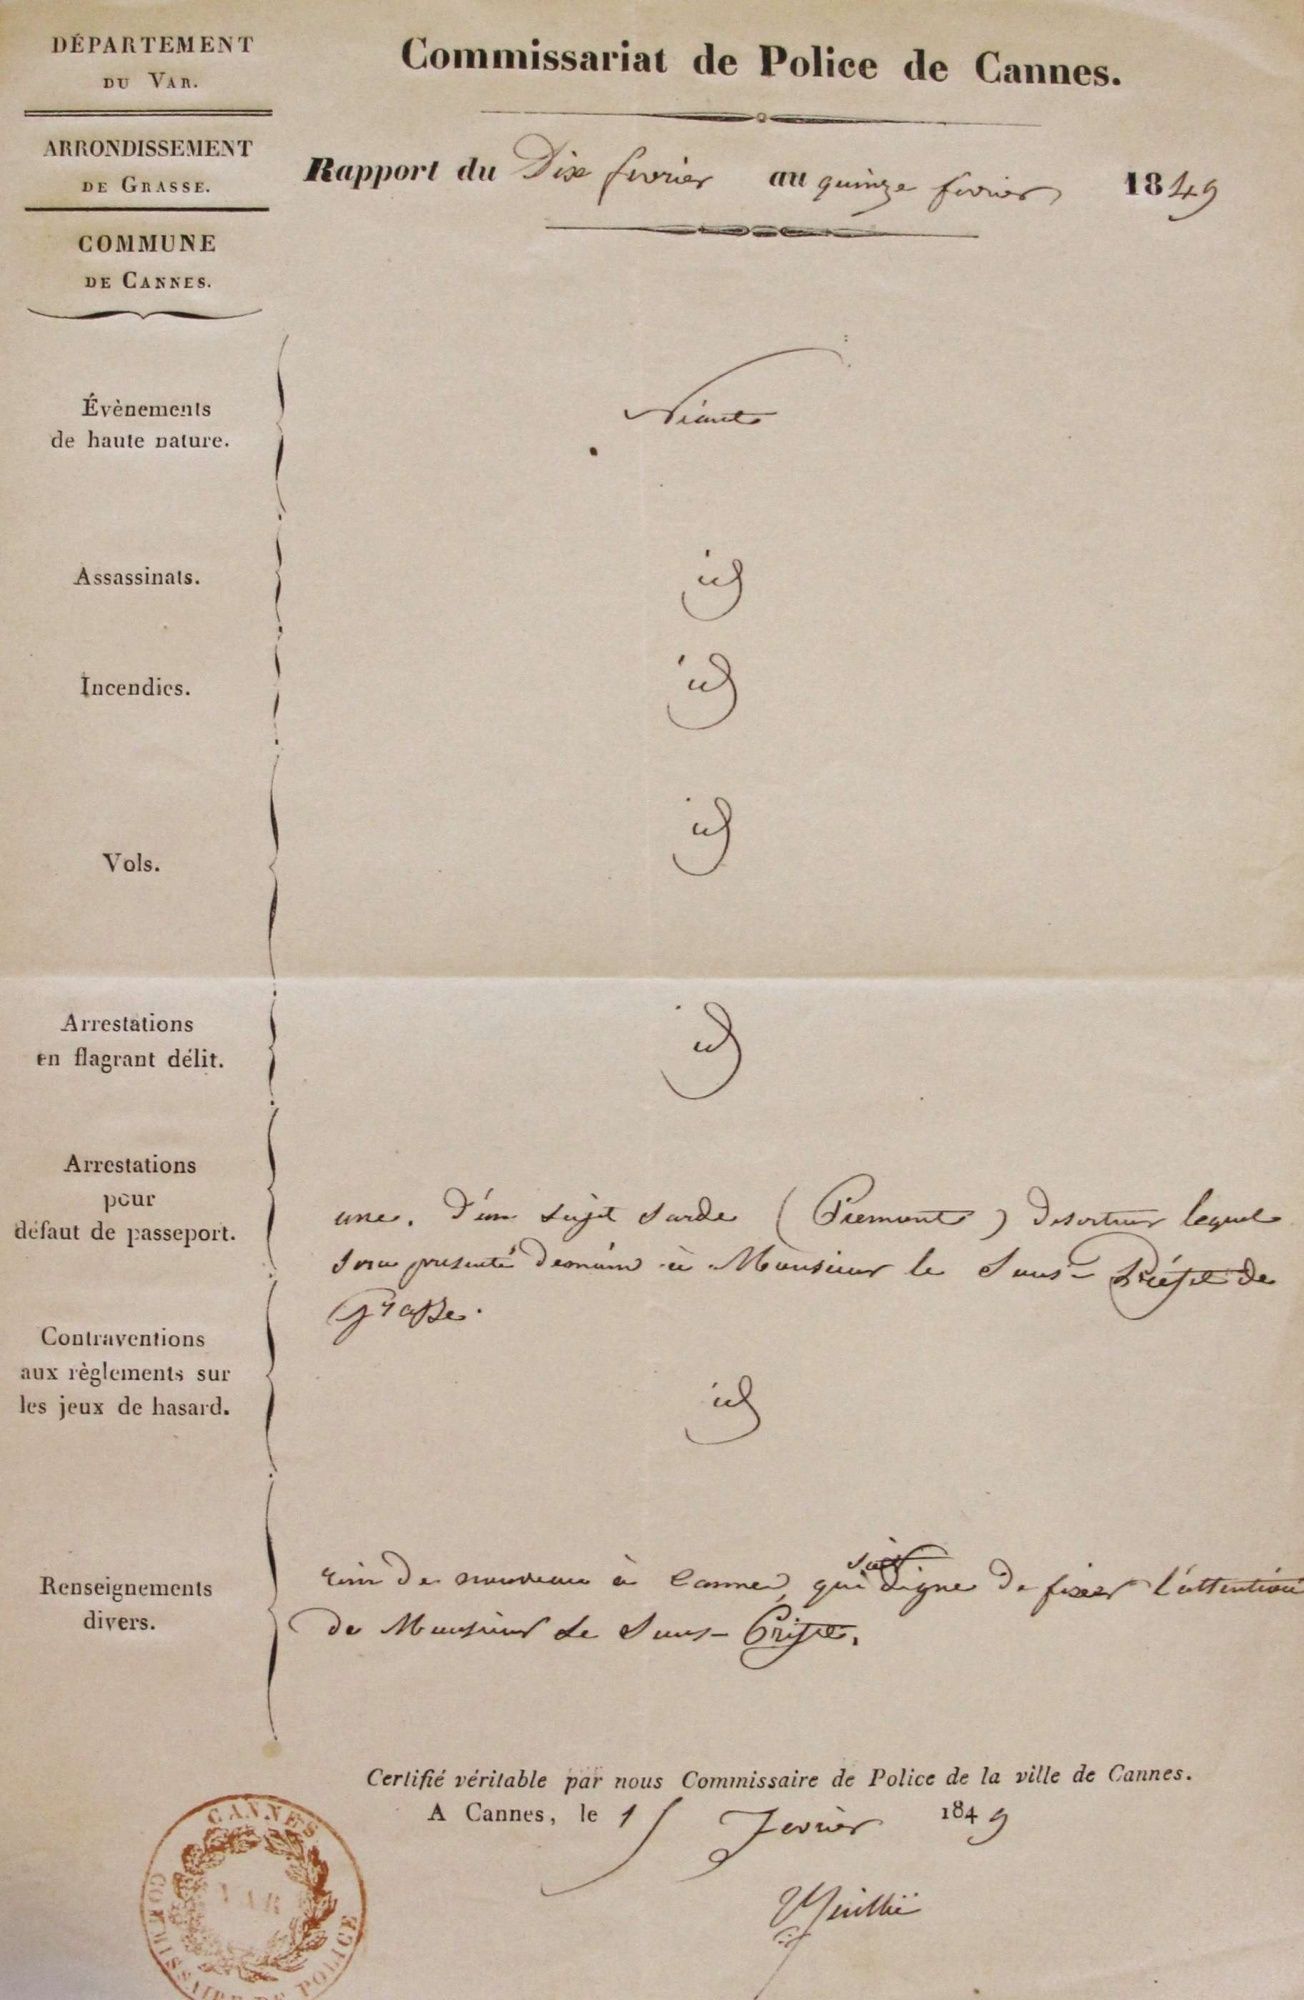 DÉPARTEMENT
DU VAR.
ARRONDISSEMENT
DE GRASSE.
COMMUNE
DE CANNES.
Commissariat de Police de Cannes.
Rapport du Dix fevrier au quinze fevrier 1849
Évènements
de haute nature.
Néant
Assassinats.
id
Incendies.
id
Vols.
id
Arrestations
en flagrant délit.
id
Arrestations
pour
défaut de passeport.
une. d'un sujet sarde (Piemont) deserteur lequel
sera presenté demain à Monsieur le Sous-Préfet de
Grasse.
Contraventions
aux règlements sur
les jeux de hasard.
id
Renseignements
divers.
rien de nouveau à Cannes, qui soit digne de fixer l'attention
de Monsieur Le Sous-Préfet.
Certifié véritable par nous Commissaire de Police de la ville de Cannes.
A Cannes, le 15 fevrier 1849
CANNES
VAR
COMMISSAIRE DE POLICE